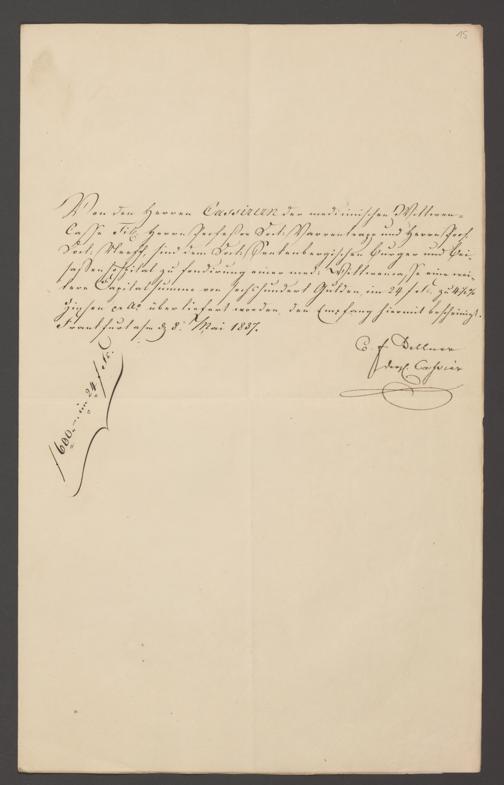 15
Von den Herren Cassirern der medicinischen Wittwen-
Casse Tit. Herrn Professor Doct: Varrentrapp und Herrn Prof.
Doct: Neeff, sind dem Doct: Senkenbergischen Bürger und Bei-
sassenhospital zu fundirung einer med. Wittwencasse eine wei-
tere Capitalsumme von Sechshundert Gulden, im 24 f. zu 4 %
Zinsen überliefert worden, den Empfang hiermit bescheinigt.
Frankfurt a/m d. 8. Mai 1837.
C. F. Dellner
Cassier
f 600.— im 24 f